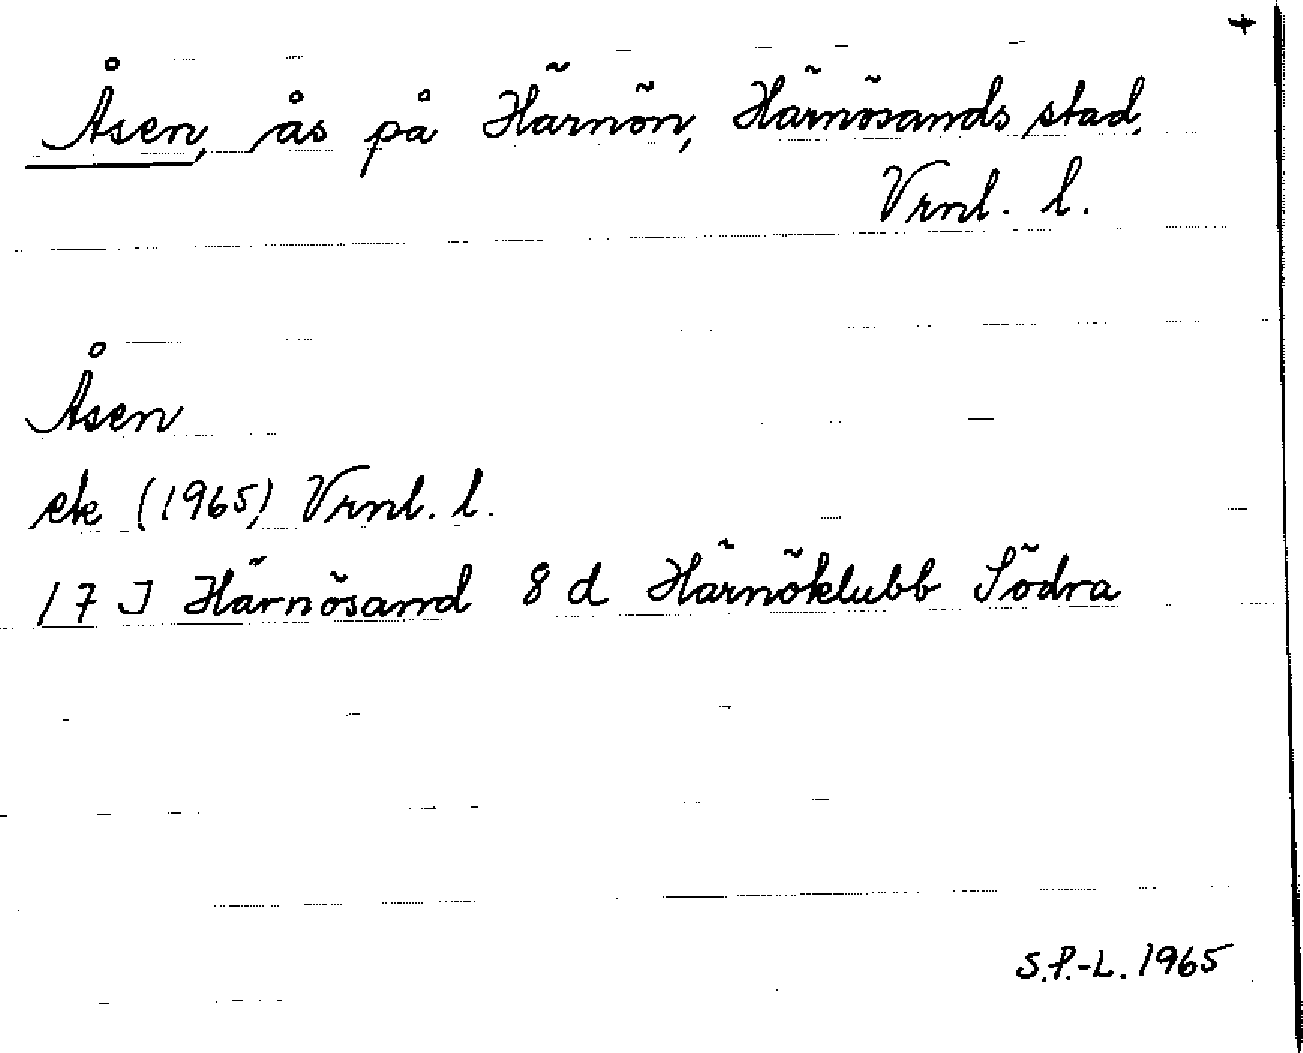 +
Åsen, ås på Härnön, Härnösands stad,
Vrnl. l.
Åsen
ek (1965) Vrnl. l.
17 J Härnösand 8 d Härnöklubb Södra
S.P.-L. 1965